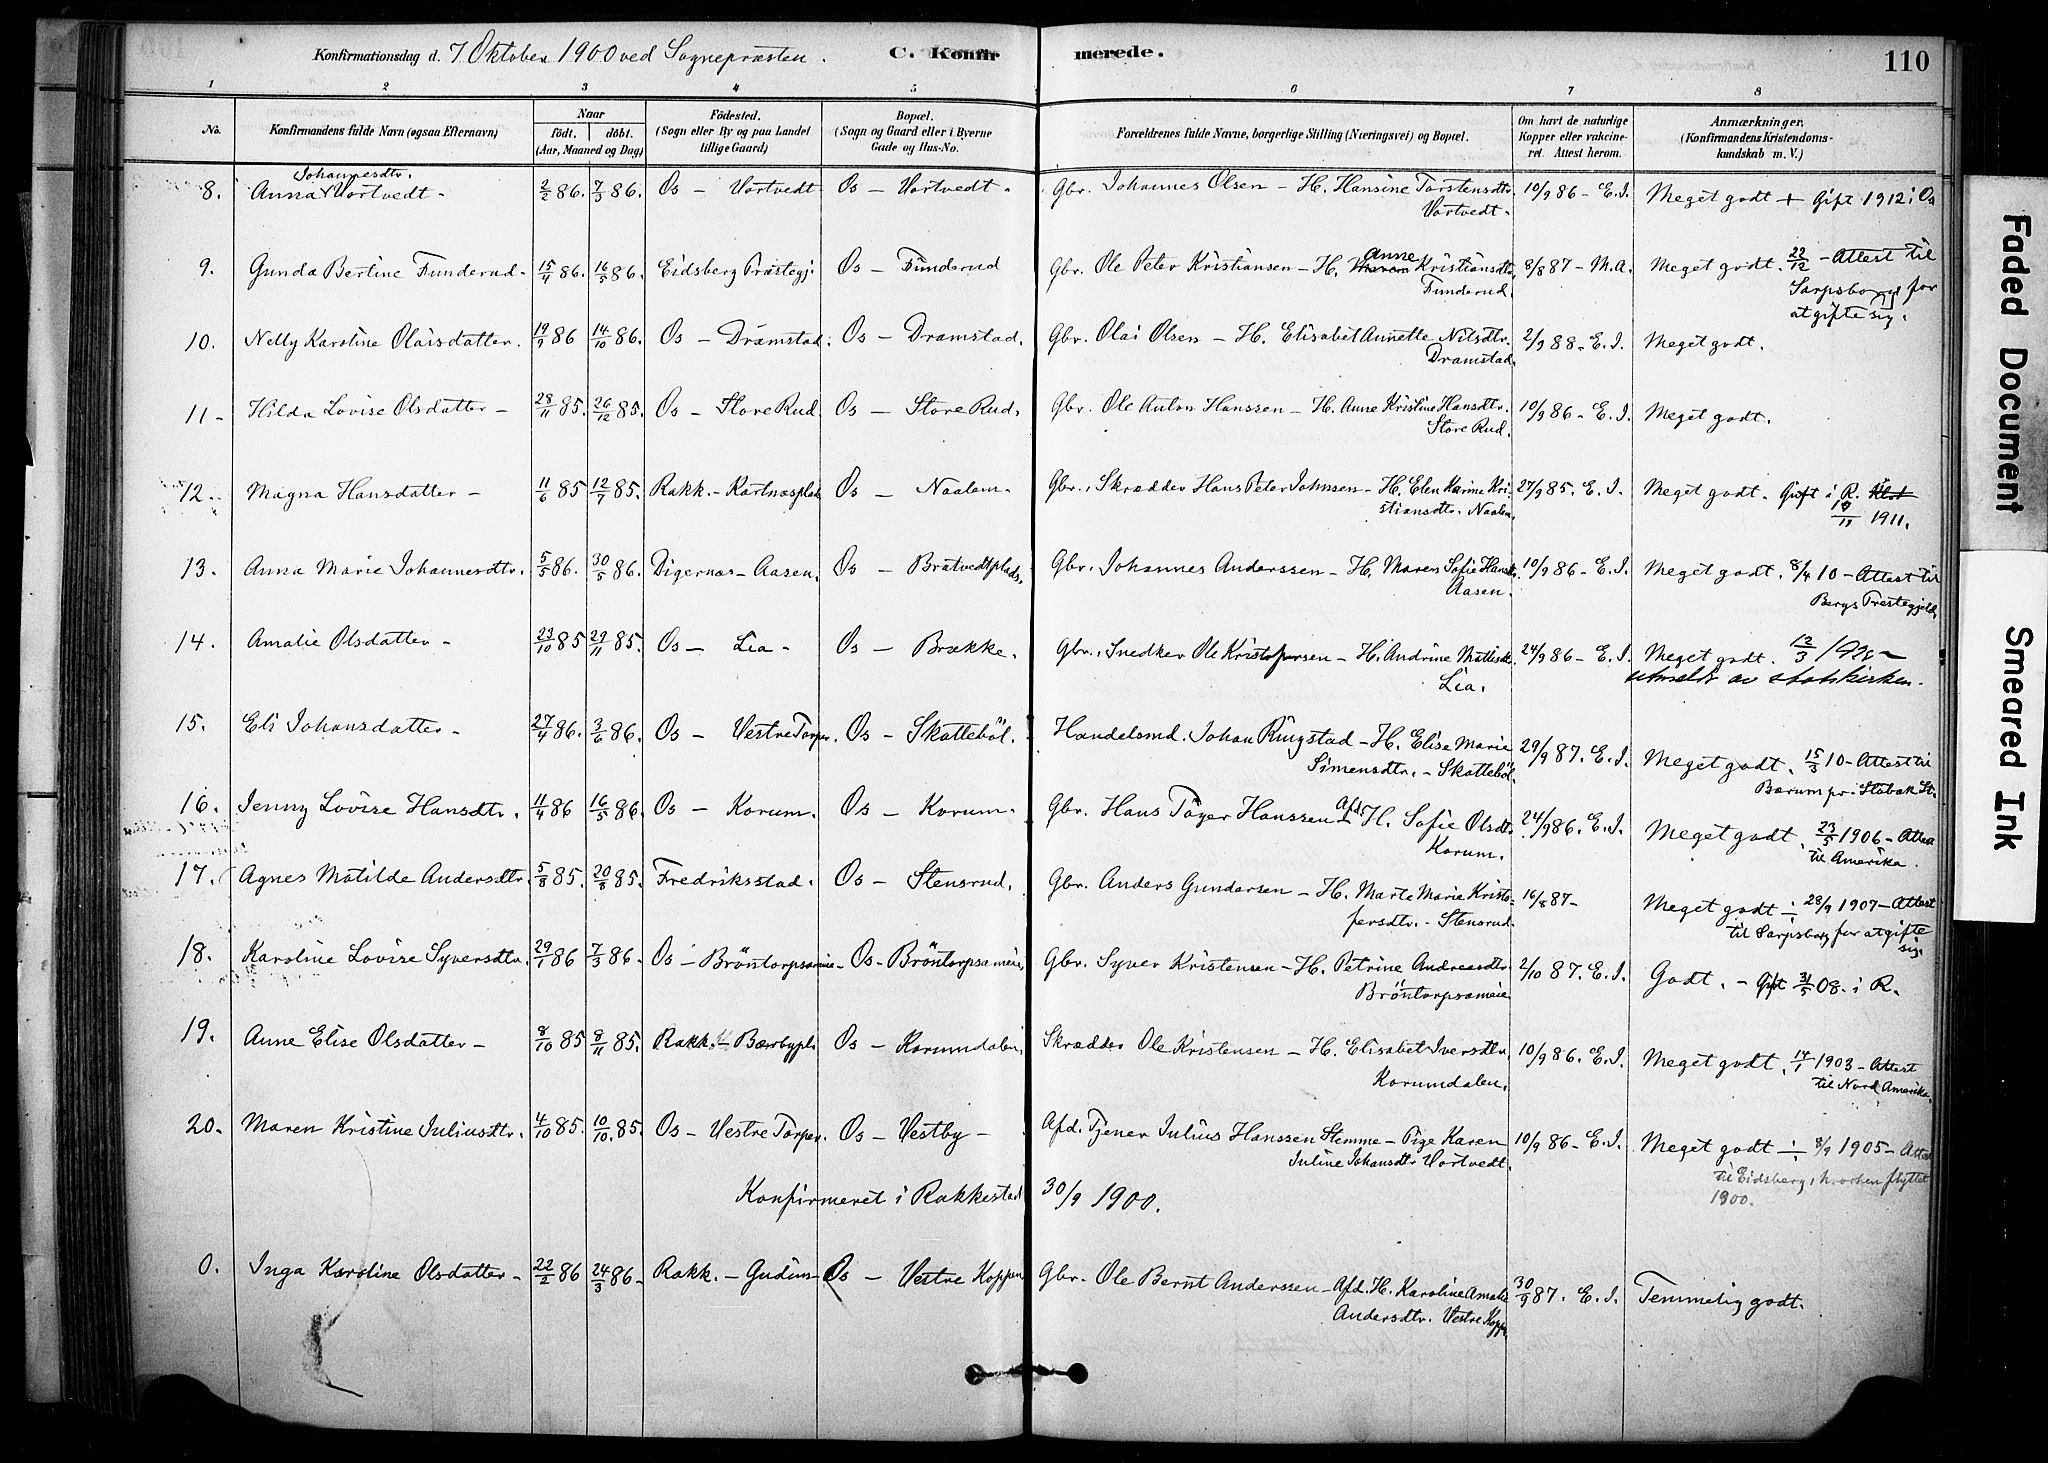 Konfirmationsdag d. 7 Oktober 1900 ved Sognepræsten. C. Konfirmerede. 110
1 2 3 4 5 6 7 8
No. Konfirmandens fulde Navn (ogsaa Efternavn) Naar født. døbt. (Aar, Maaned og Dag) Fødested. (Sogn eller By og paa Landet tillige Gaard) Bopæl. (Sogn og Gaard eller i Byerne Gade og Hus-No. Forældrenes fulde Navne, borgerlige Stilling (Næringsvei) og Bopæl. Om havt de naturlige Kopper eller vakcineret. Attest herom. Anmærkninger. (Konfirmandens Kristendomskundskab m. V.)
8. Anna Johannesdtr. Vortvedt - 2/2 86. 7/3 86. Os - Vortvedt Os - Vortvedt. Gbr. Johannes Olsen - H. Hansine Torstensdtr. Vortvedt. 10/9 86 - E.I. Meget godt + Gift 1912 i Os
9. Gunda Bertine Funderud. 15/4 86. 16/5 86. Eidsberg Præstegj. Os - Funderud Gbr. Ole Peter Kristiansen - H. Anne Kristiansdtr. Funderud. 8/8 87 - M.A. Meget godt. 22/12 - Attest til Sarpsborg for at gifte sig.
10. Nelly Karoline Olaisdatter. 19/9 86 14/10 86. Os - Dramstad. Os - Dramstad. Gbr. Olai Olsen - H. Elisabet Annette Nilsdtr. Dramstad. 2/9 88 - E.I. Meget godt.
11 - Hilda Lovise Olsdatter - 28/11 85. 26/12 85. Os - Store Rud. Os - Store Rud. Gbr. Ole Anton Hanssen - H. Anne Kristine Hansdtr. Store Rud. 10/9 86 - E.I. Meget godt.
12. Magna Hansdatter - 11/6 85 12/7 85. Rakk. - Kartnæsplads Os - Naalem. Gbr., Skrædder Hans Peter Johnsen - H. Elen Karine Kristiansdtr. Naalem. 27/9 85. E.I. Meget godt. Gift i R. 10/11 1911.
13. Anna Marie Johannesdtr. 5/5 86. 30/5 86. Digernæs - Aasen. Os - Bratvedtplads. Gbr. Johannes Anderssen - H. Maren Sofie Hansdtr. Aasen. 10/9 86 - E.I. Meget godt. 8/4 10 - Attest til Bergs Præstegjeld.
14. Amalie Olsdatter - 23/10 85 29/11 85. Os - Lia - Os - Brække. Gbr., Snedker Ole Kristofersen - H. Andrine Mattisdtr. Lia. 24/9 86 - E.I. Meget godt. 12/3 utmeldt av statskirken.
15. Eli Johansdatter - 27/4 86. 3/6 86. Os - Vestre Torper. Os - Skatteböl. Handelsmd. Johan Ringstad - H. Elise Marie Simensdtr. - Skatteböl. 29/9 87. E.I. Meget godt. 15/3 10 - Attest til Bærum pr. Stabæk St.
16. Jenny Lovise Hansdtr. 11/4 86 16/5 86. Os - Korum. Os - Korum. Gbr. Hans Töger Hanssen Afd. H. Sofie Olsdtr. Korum. 24/9 86. E.I. Meget godt. 23/5 1906 - Attest til Amerika.
17. Agnes Matilde Andersdtr. 5/8 85. 20/8 85. Fredriksstad. Os - Stensrud. Gbr. Anders Gundersen - H. Marte Marie Kristofersdtr. - Stensrud. 16/8 87 - Meget godt ÷ 28/9 1907 - Attest til Sarpsborg for at gifte sig.
18. Karoline Lovise Syversdtr. 29/1 86 7/3 86 - Os - Bröntorpsameie - Os - Bröntorpsameie, Gbr. Syver Kristensen - H. Petrine Andreasdtr. Bröntorpsameie 2/10 87. E.I. Godt. - Gift 31/5 08. i R.
19. Anne Elise Olsdatter - 8/10 85 8/11 85. Rakk. - Bærbypl. Os - Korumdalen. Skrædder Ole Kristensen - H. Elisabet Iversdtr. Korumdalen. 10/9 86. E.I. Meget godt. 14/1 1903 - Attest til Nord Amerika.
20. Maren Kristine Juliusdtr. 4/10 85. 10/10 85. Os - Vestre Torper. Os - Vestby - Afd. Tjener Julius Hanssen Stemme - Pige Karen Juline Johansdtr. Vortvedt. 10/9 86 - E.I. Meget godt ÷ 8/9 1905 - Attest til Eidsberg, hvorhen flyttet 1900.
Konfirmeret i Rakkestad 30/9 1900.
0. Inga Karoline Olsdatter - 22/2 86 24/3 86 - Rakk. - Gudim - Os - Vestre Koppen Gbr. Ole Bernt Anderssen - Afd. H. Karoline Amalie Andersdtr. Vestre Kopp. 30/9 87. E.I. Temmelig godt.
Faded Document
Smeared Ink